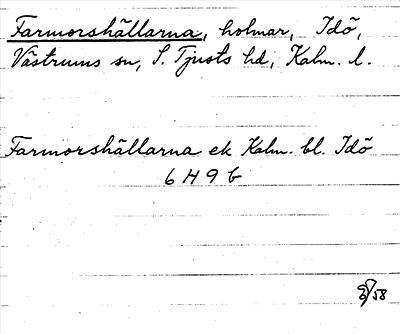 Farmorshällarna, holmar, Idö,
Västrums sn, S. Tjusts hd, Kalm. l.
Farmorshällarna ek Kalm. bl. Idö
6 H 9 b
58